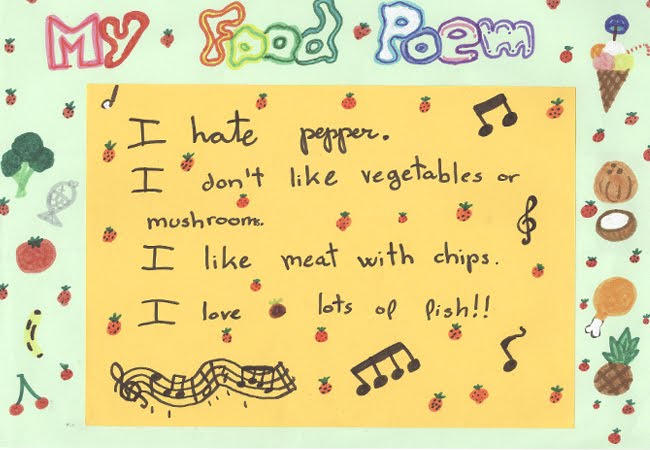 My Food Poem
I hate pepper.
I don't like vegetables or
mushrooms.
I like meat with chips.
I love lots of fish!!